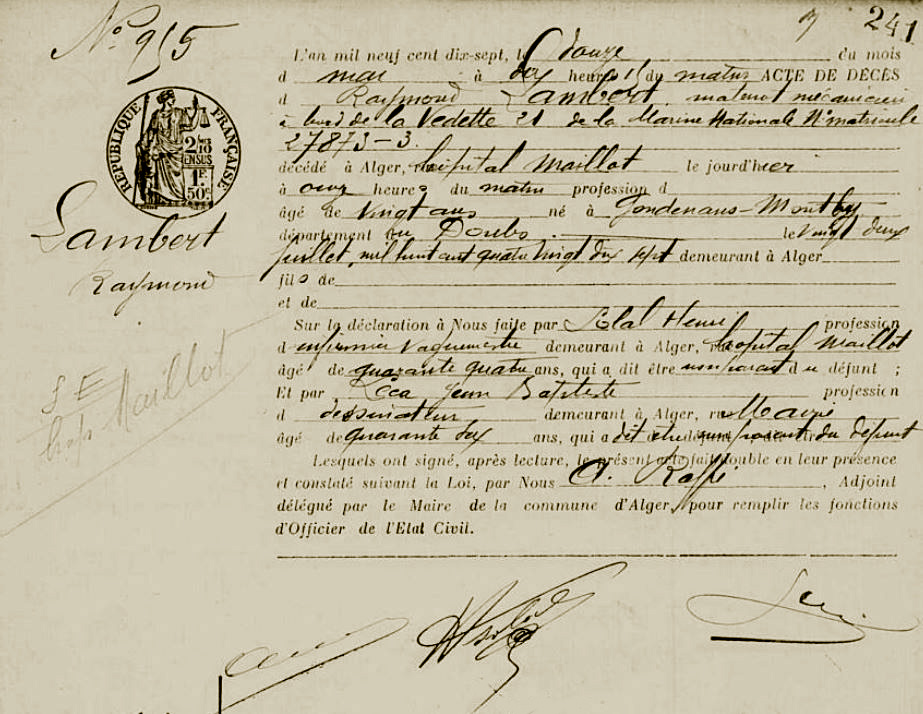 241
Nº 955
L'an mil neuf cent dix-sept, le douze du mois
d mai à dix heures 15 du matin ACTE DE DÉCÈS
d Raymond Lambert, matelot mécanicien
à bord de la Vedette 21 de la Marine Nationale Nº matricule
27873-3.
RÉPUBLIQUE FRANÇAISE
1F 50c
décédé à Alger, hôpital Maillot le jourd'hier
à onze heures du matin profession d
âgé de vingt ans né à Gondenans-Montby
Lambert
département du Doubs le vingt deux
juillet mil huit cent quatre vingt dix sept demeurant à Alger
Raymond
fils de
et de
Sur la déclaration à Nous faite par Henri profession
d infirmier vaguemestre demeurant à Alger, hôpital Maillot
âgé de quarante quatre ans, qui a dit être non parent du défunt ;
S E
Et par Jean Baptiste profession
d dessinateur demeurant à Alger, rue Mairie
Maillot
âgé de quarante six ans, qui a dit être non parent du défunt
Lesquels ont signé, après lecture, le présent acte fait double en leur présence
et constaté suivant la Loi, par Nous Adjoint
délégué par le Maire de la commune d'Alger, pour remplir les fonctions
d'Officier de l'Etat Civil.